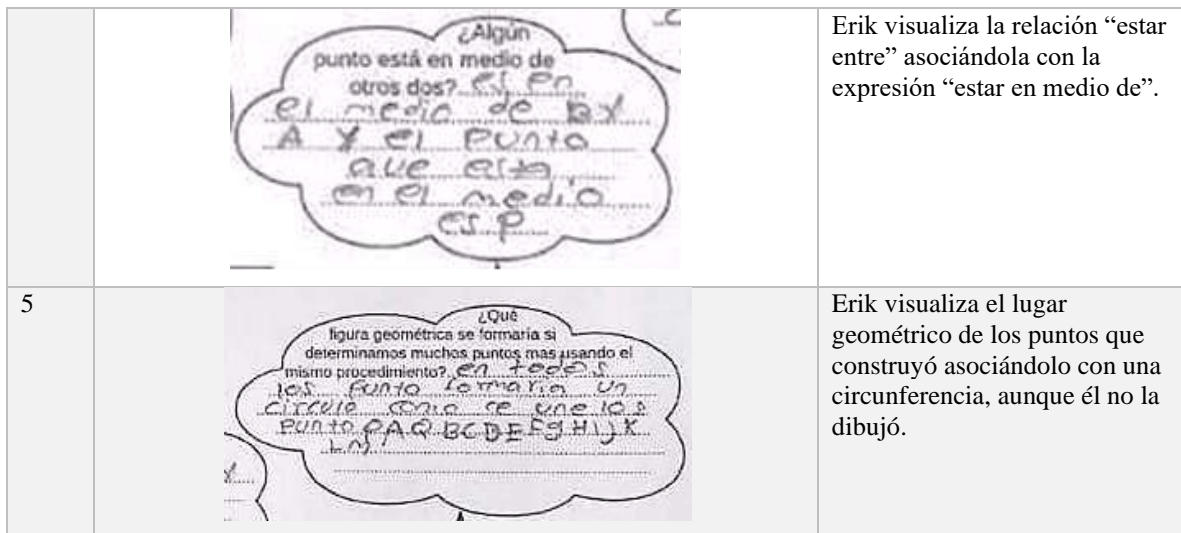 ¿Algún
punto está en medio de
otros dos? es en
el medio de B y
A y el punto
que esta
en el medio
es P
Erik visualiza la relación “estar
entre” asociándola con la
expresión “estar en medio de”.
5
¿Qué
figura geométrica se formaría si
determinamos muchos puntos mas usando el
mismo procedimiento? en todos
los punto formaria un
circulo como se une los
punto P A Q B C D E F g H I J K
L M
Erik visualiza el lugar
geométrico de los puntos que
construyó asociándolo con una
circunferencia, aunque él no la
dibujó.